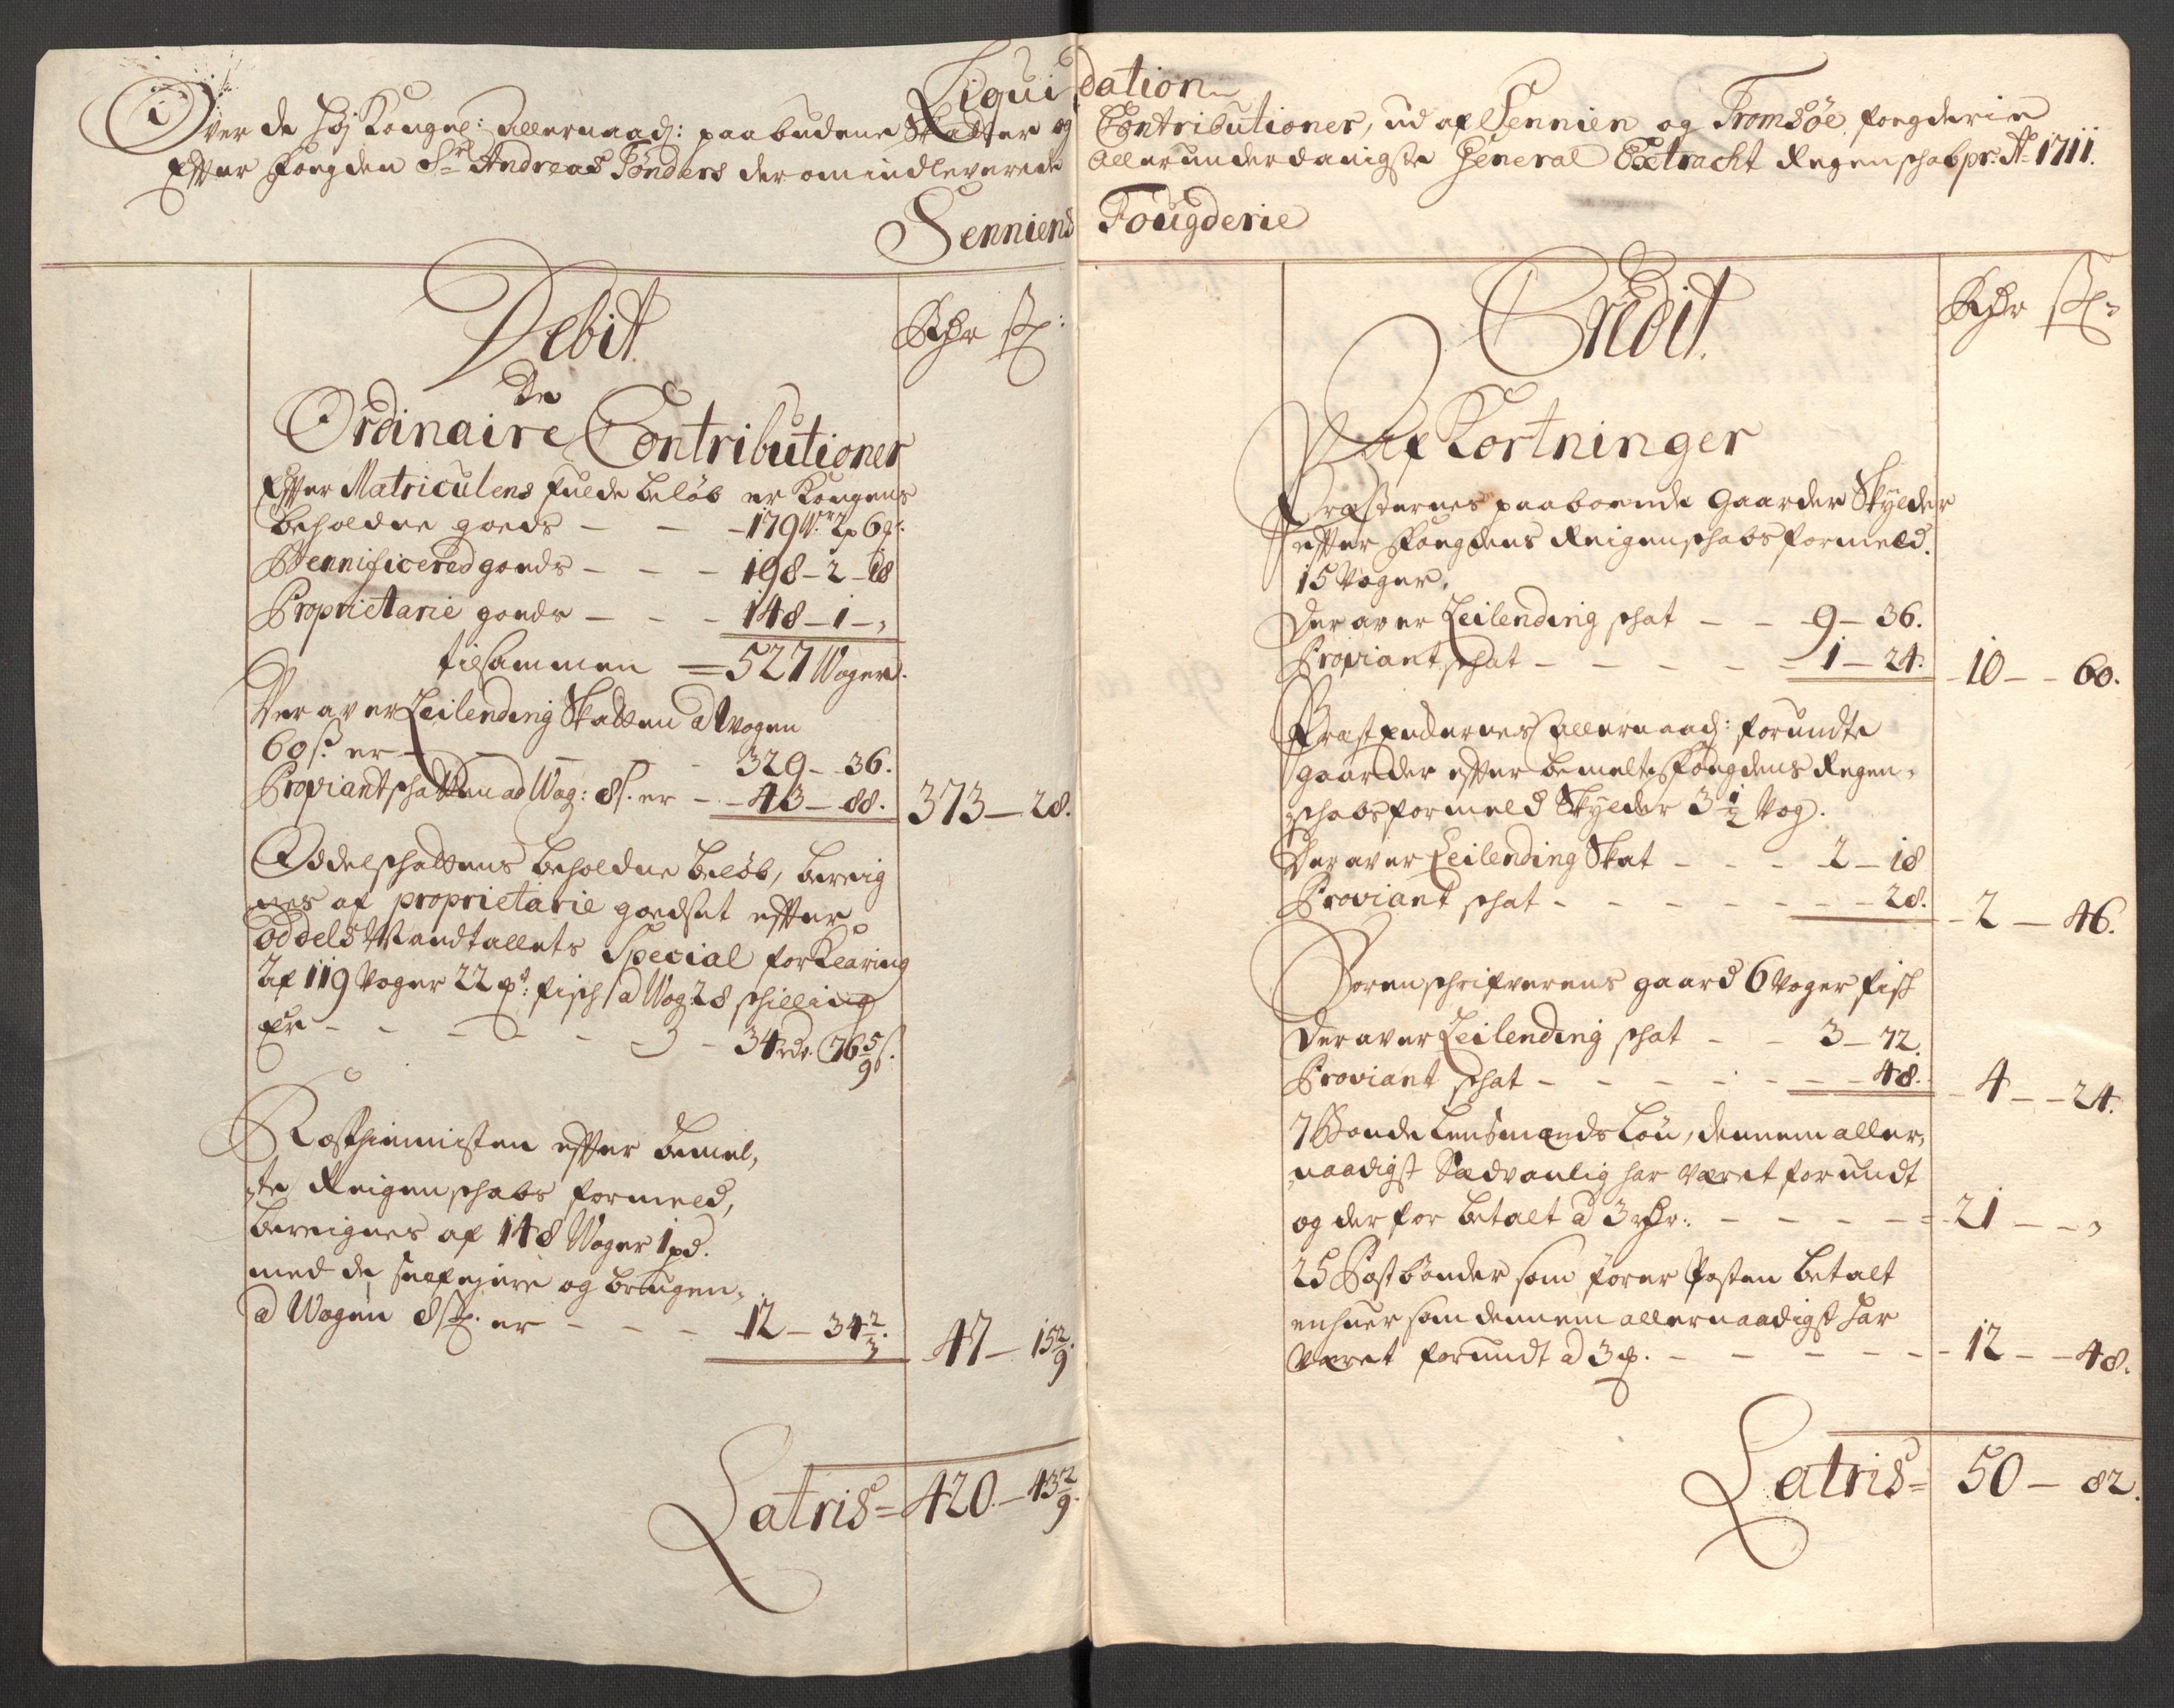 Liquidation
Over de høj Kongel: Allernaad: paabudene Skatter og Contributioner, ud af Sennien og Tromsøe fougderie
Efter fougden Sr Andreas Tønders der om indleverede Allerunderdanigste General Extracht Regenschab pr: Ao 1711.
Senniens Fougderie
Debit
Rdr ss:
De
Ordinaire Contributioner
Efter Matriculens fulde beløb er Kongens
beholdne goeds - - - 179 W: 2 p 6 p:
Bennificered goeds - - - 198 - 2 - 18
Proprietarie goeds - - - 148 - 1 - ,
tilsammen = 527 Woger.
Der av er Leilending Skatten ad Wogen
60 s. er - - - 329 - 36.
Proviantschatten ad Wog: 8 s. er - - 43 - 88. 373 - 28.
Oddelschattens beholdne beløb, bereig
nes af proprietarie goedset efter
oddels Mandtallets Special forklaring
af 119 Woger 22 pd: fisch ad Wog: 28 schilling
Er - - - - - 34 rdr. 76 5/9 s.
Rosthiennisten efter bemel,
te Reigenschabs formeld,
bereignes af 148 Woger 1 pd.
med de sielfejere og brugen,
ad Wogen 8 s. er - - - 12 - 34 2/3. 47 - 15 2/9.
Latris = 420. - 43 2/9.
Credit.
Rdr ss:
Afkortninger
Præsternes paaboende Gaarder Skylder
efter Fougdens Reigenschabs formeld.
15 Woger.
Der av er Leilending schat - - 9 - 36.
Proviant schat - - - - - 1 - 24. 10 - - 60.
Præst Enckernes allernaad: forundte
gaarder efter bemelte Fougdens Regen,
schabs formeld Skylder 3 1/2 Wog.
Der av er Leilending Skat - - - 2 - 18
Proviant schat - - - - - - - 28. 2 - 46.
Sorenschrifverens gaard 6 Woger fisch
Der av er Leilending schat - - 3 - 72.
Proviant schat - - - - - - - 48. 4 - - 24.
7 Bonde Lensmends Løn, dennem aller,
naadigst Sædvanlig har været forundt
og der for betalt ad 3 rdr: - - - - - 21 - - ,
25 Postbønder som fører Posten betalt
enhver som dennem allernaadigst har
været forundt ad 3 p. - - - - - 12 - - 48.
Latris = 50 - 82.